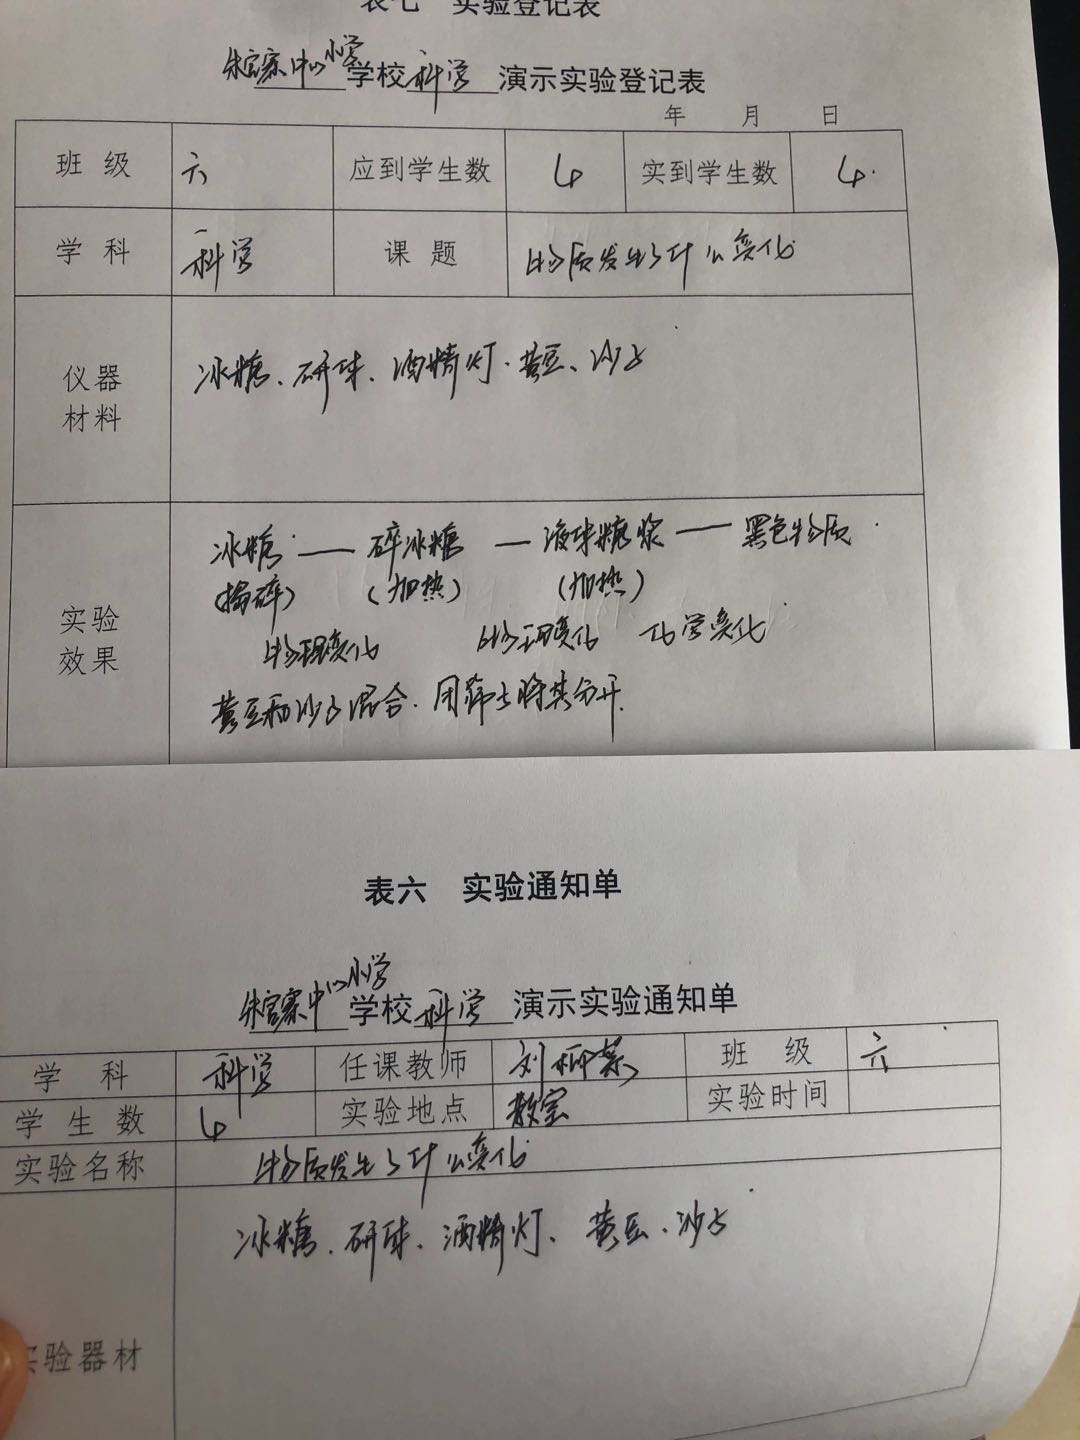 表七 实验登记表
朱官寨中心小学学校科学演示实验登记表
年 月 日
班级 六 应到学生数 4 实到学生数 4
学科 科学 课题 物质发生了什么变化
仪器材料 冰糖、研球、酒精灯、黄豆、沙子
实验效果 冰糖 — 碎冰糖 — 液球糖浆 — 黑色物质
(捣碎) (加热) (加热)
物理变化 物理变化 化学变化
黄豆和沙子混合.用筛子将其分开.
表六 实验通知单
朱官寨中心小学学校科学演示实验通知单
学科 科学 任课教师 刘柳菜 班级 六
学生数 4 实验地点 教室 实验时间
实验名称 物质发生了什么变化
冰糖、研球、酒精灯、黄豆、沙子
实验器材